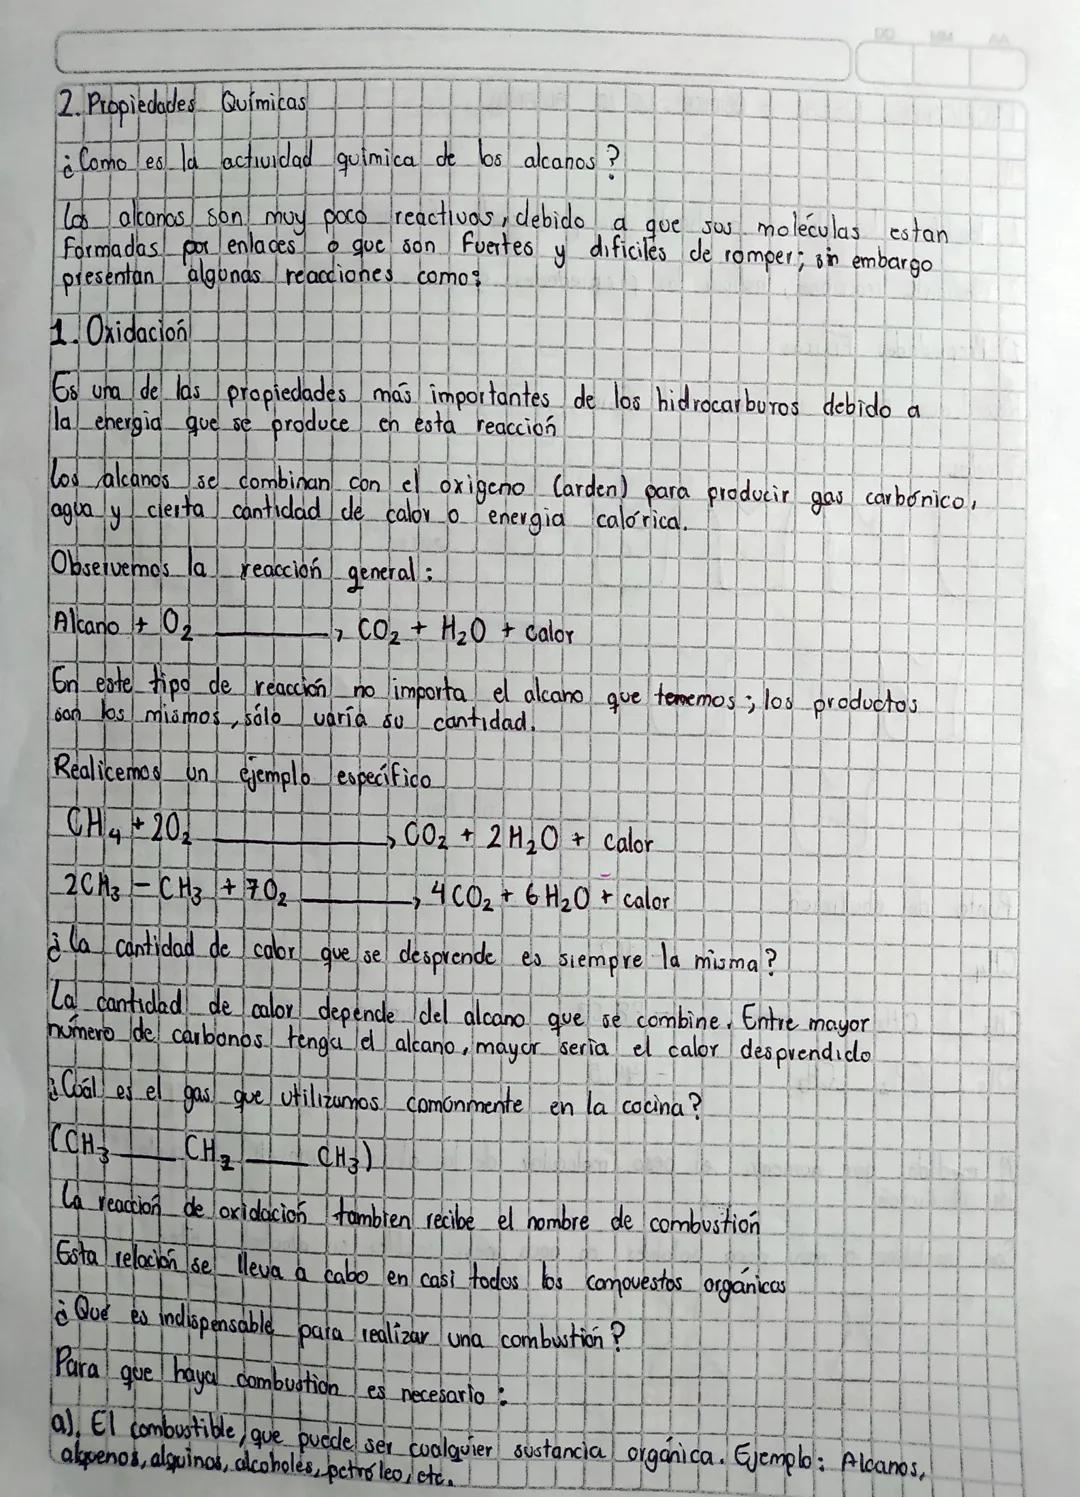 2. Propiedades Químicas
¿Como es la actividad química de los alcanos?
Los alcanos son muy poco reactivos, debido a que sus moléculas estan
formadas por enlaces σ que son fuertes y dificiles de romper; sin embargo
presentan algunas reacciones como:
1. Oxidación
Es una de las propiedades más importantes de los hidrocarburos debido a
la energia que se produce en esta reacción
Los alcanos se combinan con el oxigeno (arden) para producir gas carbónico,
agua y cierta cantidad de calor o energia calórica.
Observemos la reacción general:
Alcano + O₂ → CO₂ + H₂O + calor
En este tipo de reacción no importa el alcano que tememos; los productos
son los mismos, sólo varía su cantidad.
Realicemos un ejemplo específico
CH₄ + 2O₂ → CO₂ + 2H₂O + calor
2CH₃ – CH₃ + 7O₂ → 4CO₂ + 6H₂O + calor
¿La cantidad de calor que se desprende es siempre la misma?
La cantidad de calor depende del alcano que se combine. Entre mayor
número de carbonos tenga el alcano, mayor seria el calor desprendido
¿Cuál es el gas que utilizamos comúnmente en la cocina?
(CH₃ __ CH₂ __ CH₃)
La reacción de oxidación tambien recibe el nombre de combustión
Esta relación se lleva a cabo en casi todos los compuestos orgánicos
¿Qué es indispensable para realizar una combustión?
Para que haya combustion es necesario:
a). El combustible, que puede ser cualquier sustancia orgánica. Ejemplo: Alcanos,
alquenos, alquinos, alcoholes, petróleo, etc.